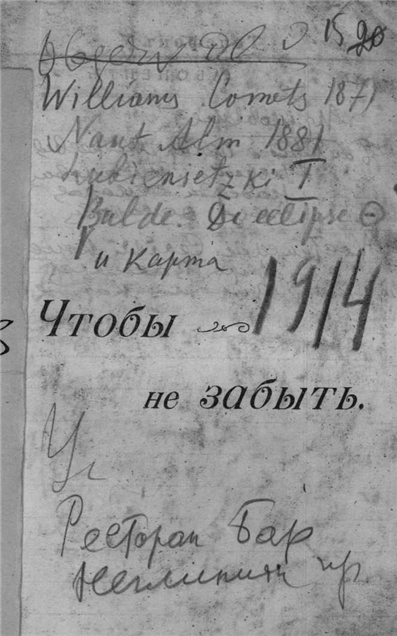 15 20
Williams Comets 1871
Naut Alm 1881
Lubienietzki I
Balde. De eclipse
и карта
1914
Чтобы
не забыть.
Ресторан Бар